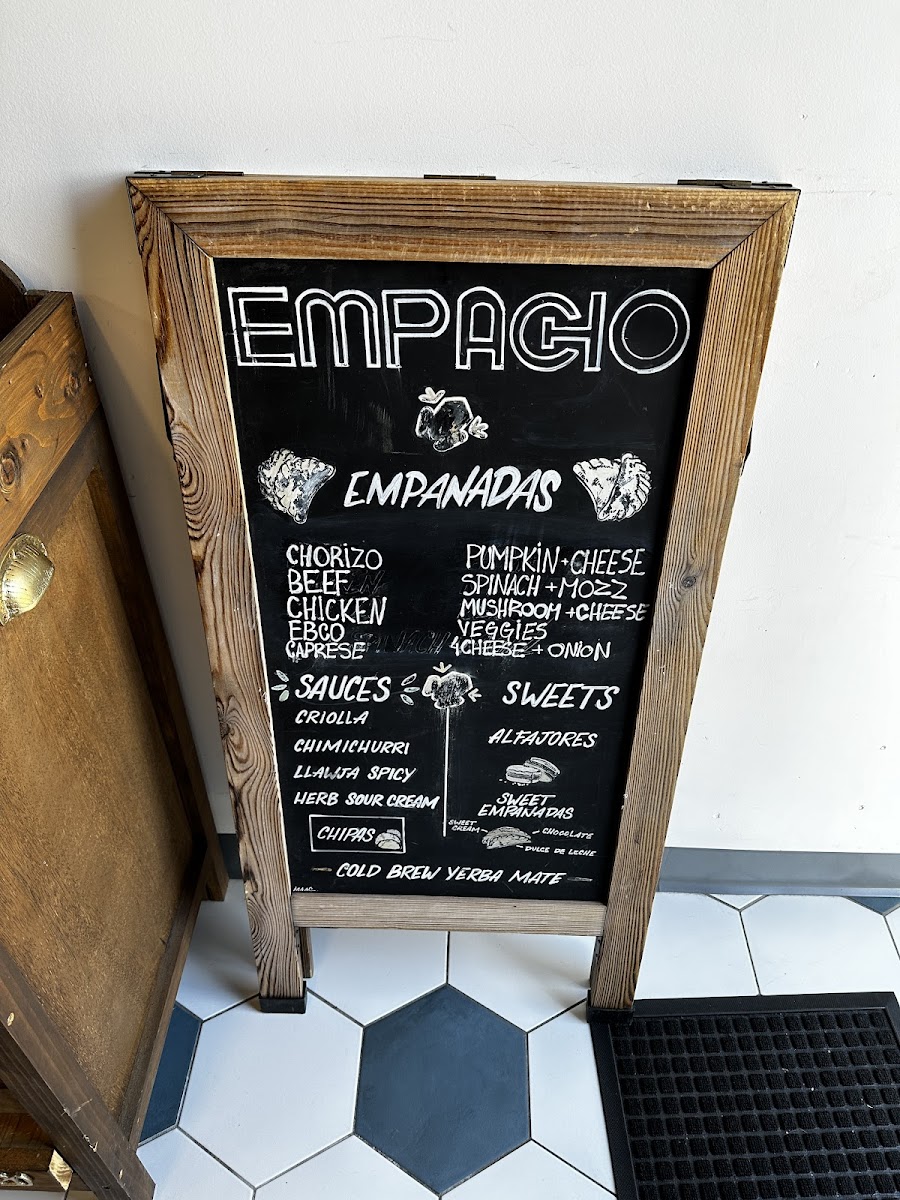 EMPACHO
EMPANADAS
CHORIZO
BEEF
CHICKEN
EBCO
CAPRESE
PUMPKIN + CHEESE
SPINACH + MOZZ
MUSHROOM + CHEESE
VEGGIES
4CHEESE + ONION
SAUCES
CRIOLLA
CHIMICHURRI
LLAWJA SPICY
HERB SOUR CREAM
CHIPAS
SWEETS
ALFAJORES
SWEET
EMPANADAS
SWEET
CREAM
CHOCOLATE
DULCE DE LECHE
COLD BREW YERBA MATE